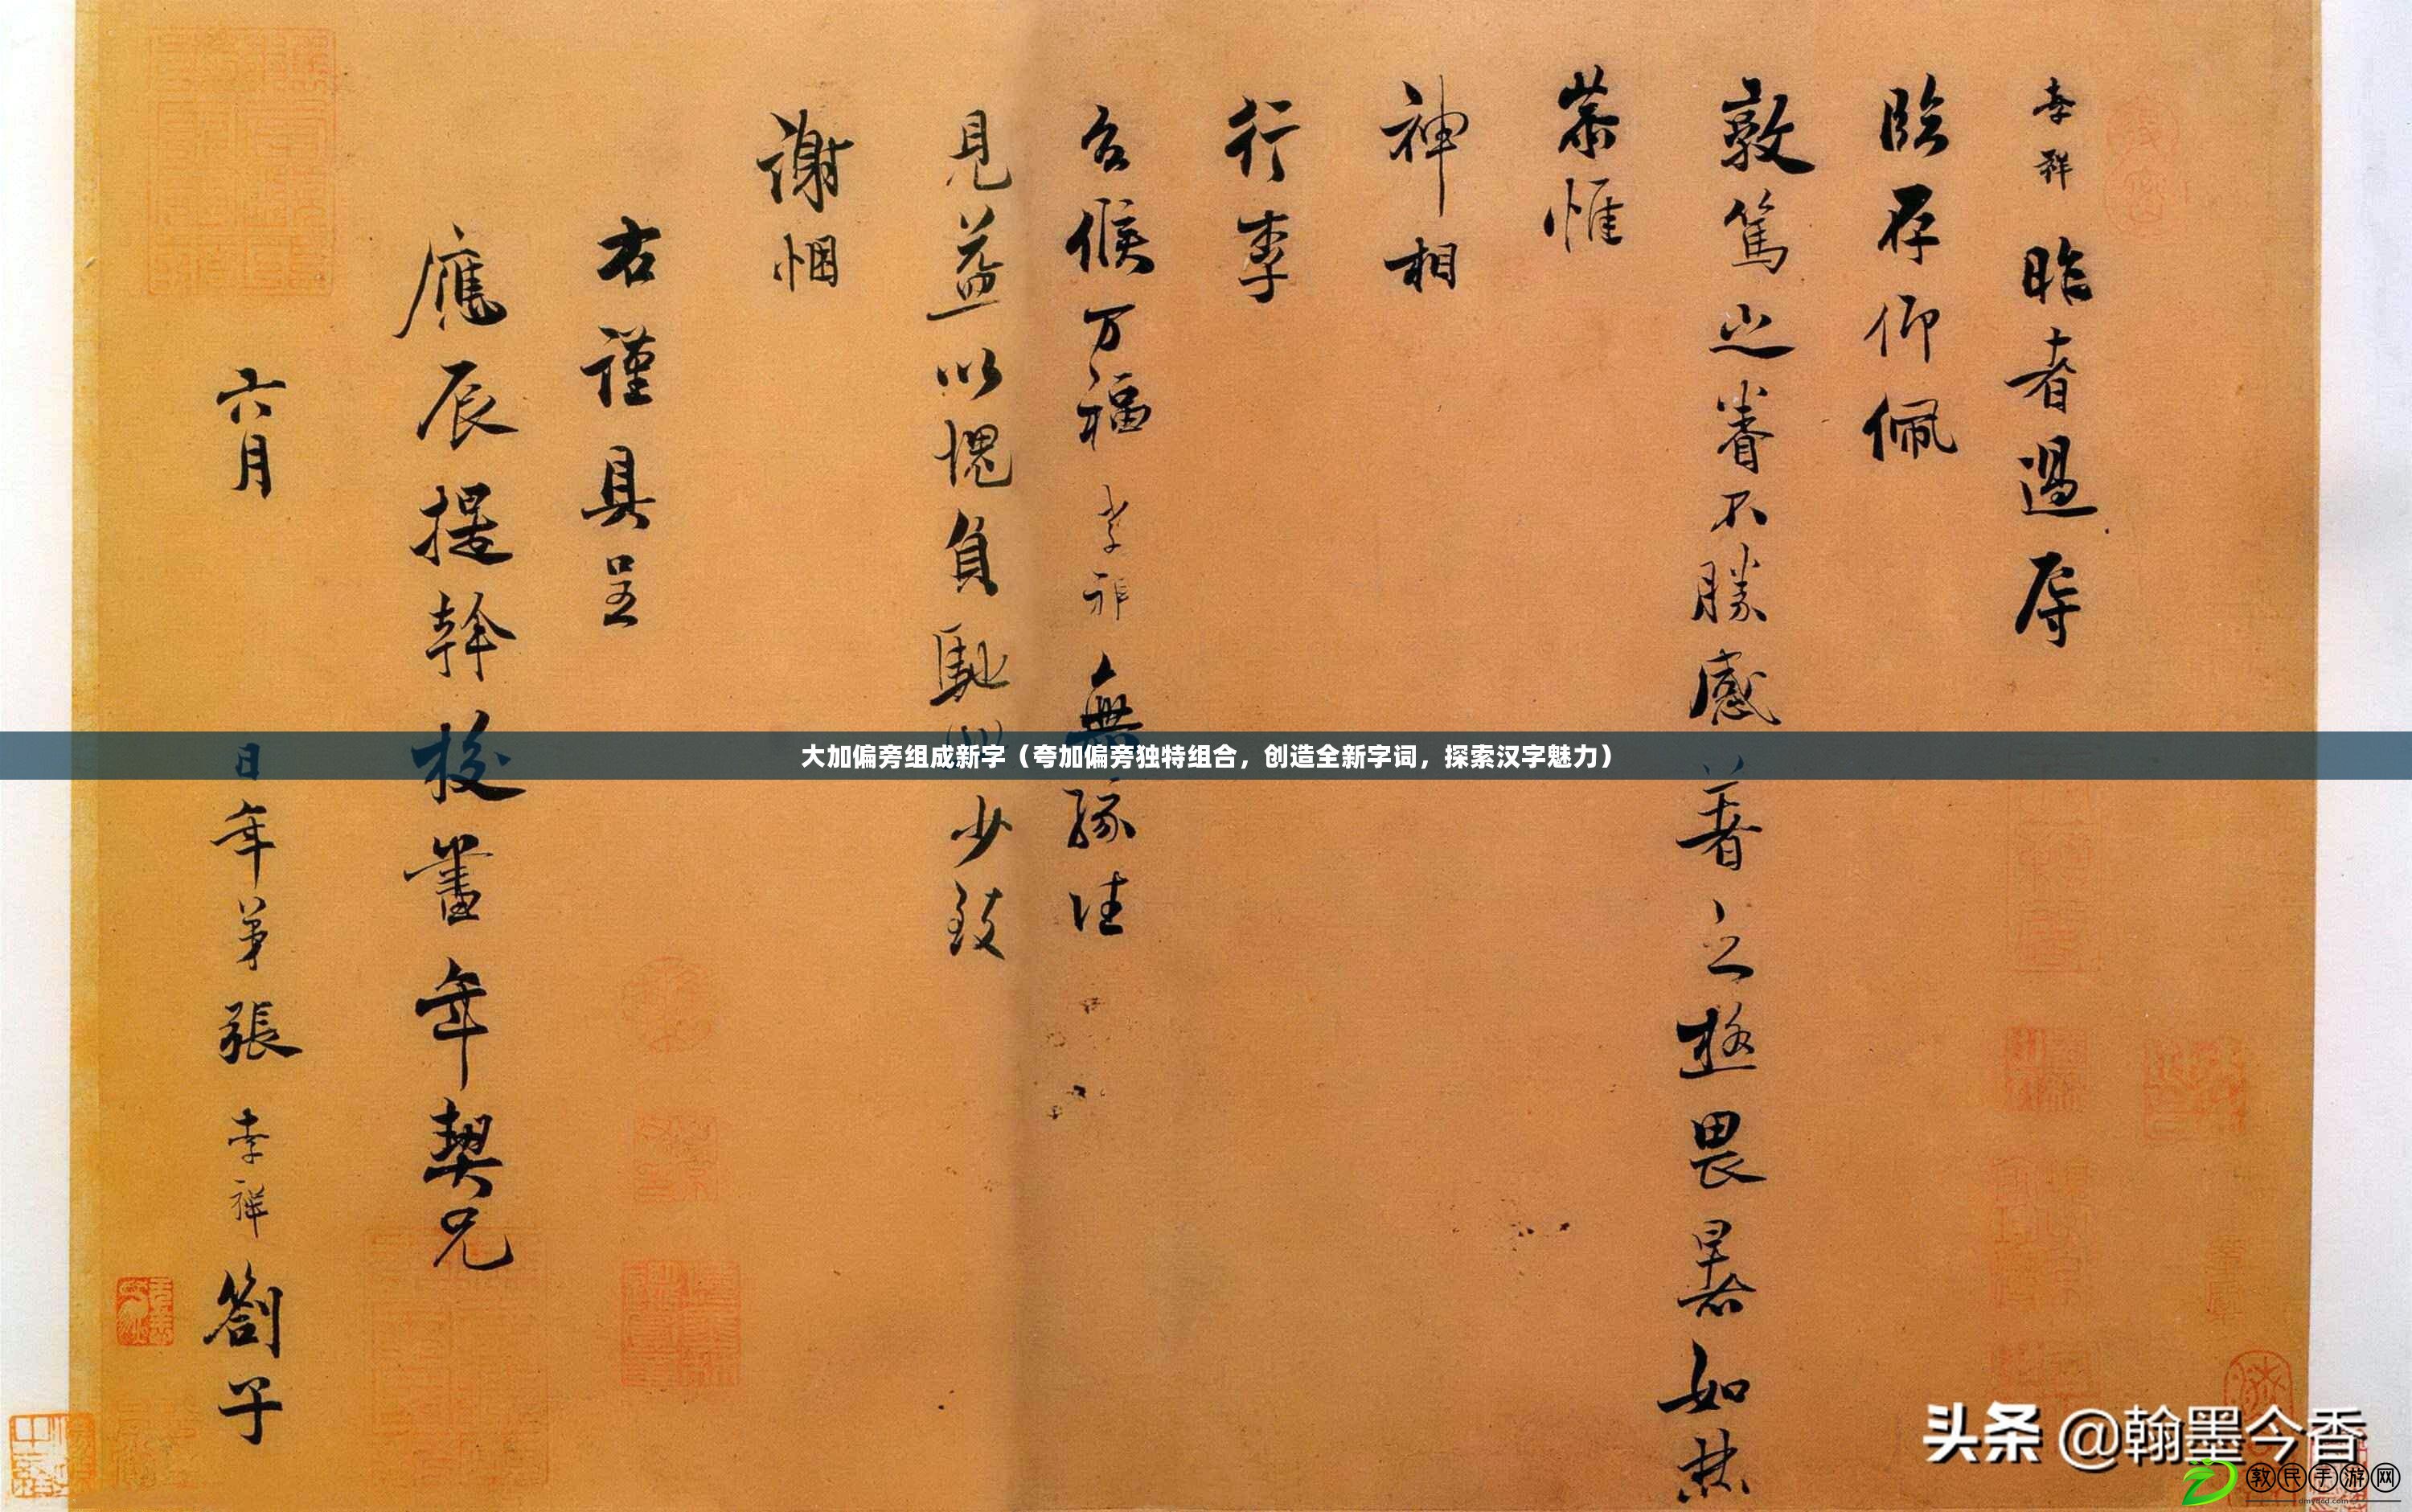 孝祥昨者過辱
臨存仰佩
敦篤之眷不勝感著之極畏暑如焚
恭惟
神相
行李
台候万福孝祥無緣往
見益以愧負馳少致
謝悃
右謹具呈
應辰提幹校書年契兄
六月 日年弟張孝祥劄子
大加偏旁组成新字（夸加偏旁独特组合，创造全新字词，探索汉字魅力）
头条 @翰墨今香
教民手游网
dmyddd.com